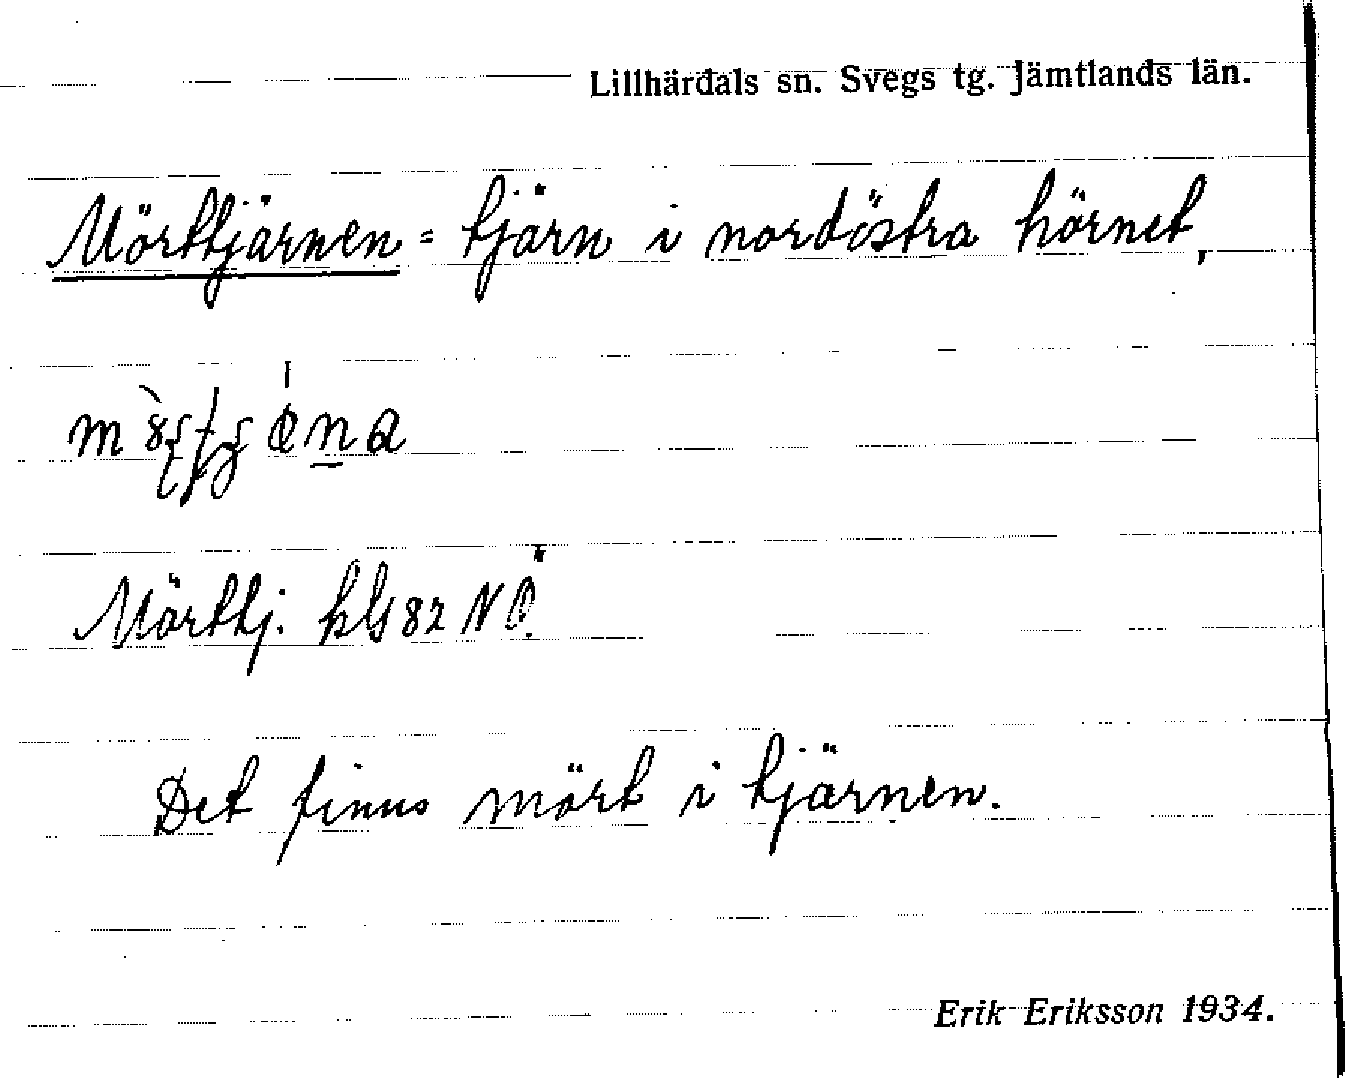 Lillhärdals sn. Svegs tg. Jämtlands län.
Mörttjärnen = tjärn i nordöstra hörnet,
Mörttj. kbl 82 NÖ.
Det finns mört i tjärnen.
Erik Eriksson 1934.